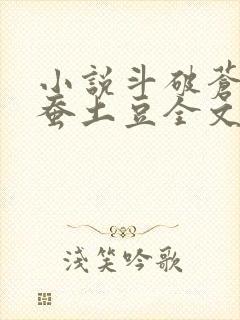 小說斗破蒼
蚕土豆全文
淺笑吟歌